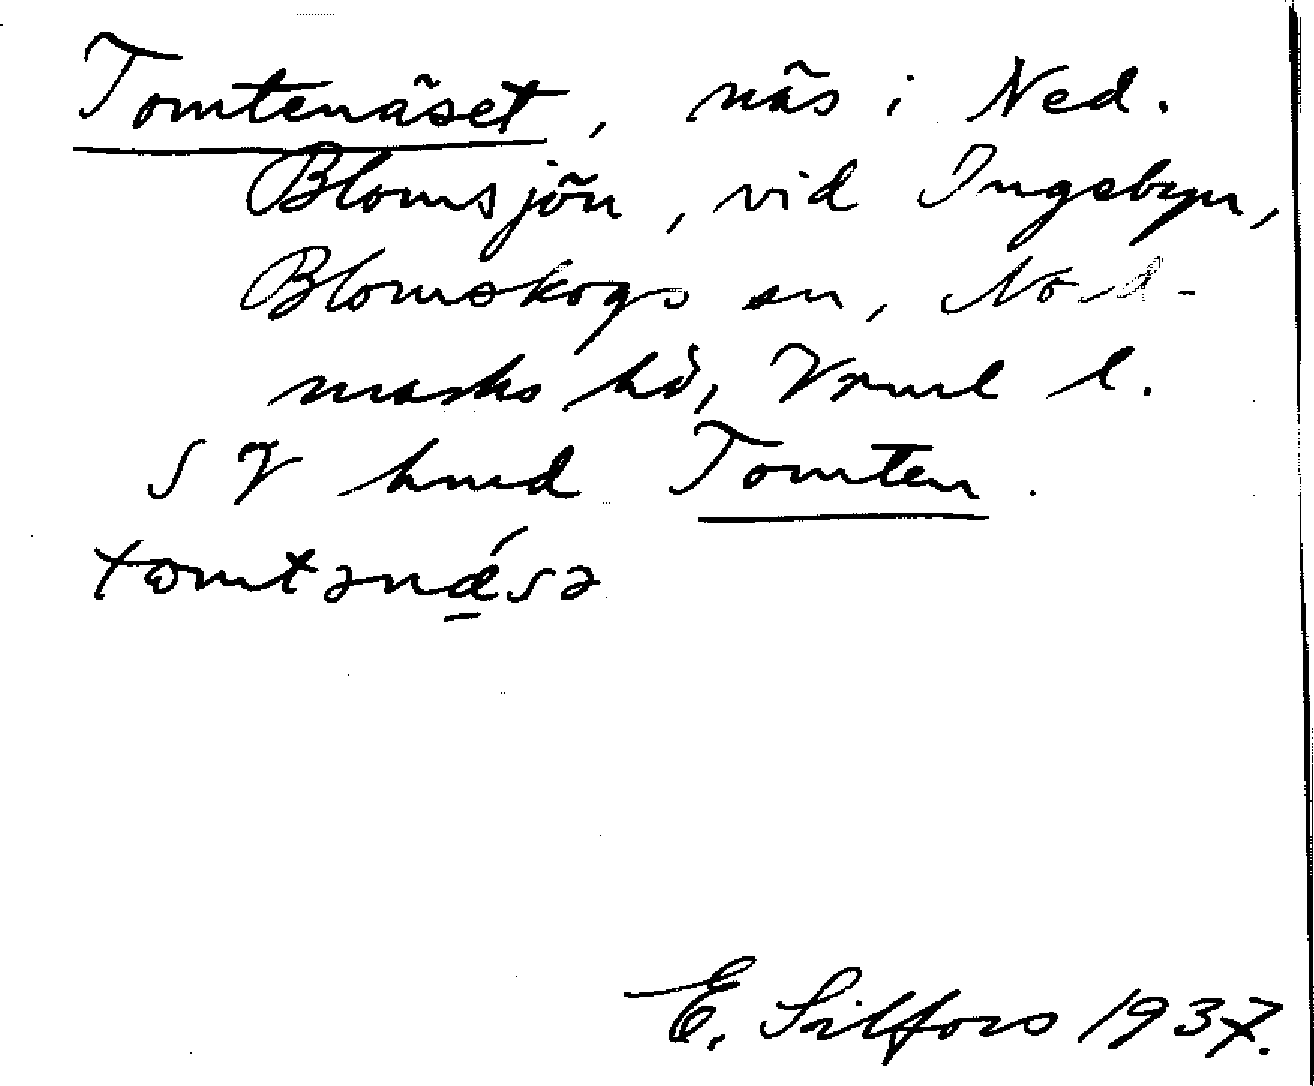 Tomtenäset, näs i Ned.
Blomsjön, vid Ingebyn,
Blomskogs sn, Nord-
marks hd, Vrml l.
SV hmd Tomten.
tomtənǽsə
E. Silfors 1937.